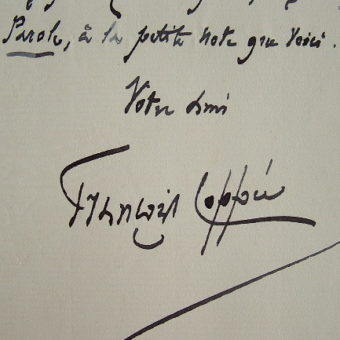 Parole, à la petite note que voici.
Votre ami
François Coppée